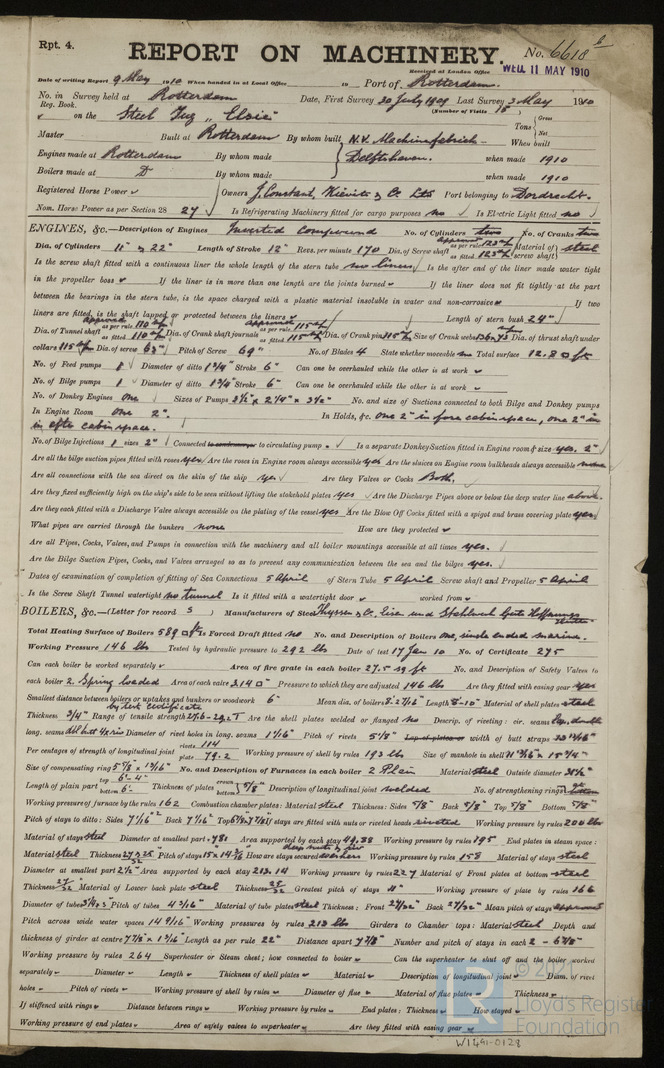 Rpt. 4.
REPORT ON MACHINERY.
No. 6618
Received at London Office
WED. 11 MAY 1910
Date of writing Report 9 May 1910 When handed in at Local Office 19 Port of Rotterdam
No. in Reg. Book. Survey held at Rotterdam Date, First Survey 30 July 1909 Last Survey 3 May 1910
(Number of Visits 18)
on the Steel Tug "Elsie" Tons Gross Net
Master Built at Rotterdam By whom built N.V. Machinefabriek Delfshaven. When built
Engines made at Rotterdam By whom made when made 1910
Boilers made at By whom made when made 1910
Registered Horse Power Owners J. Constant, Kievits & Co. Ltd Port belonging to Dordrecht.
Nom. Horse Power as per Section 28 27 Is Refrigerating Machinery fitted for cargo purposes no Is Electric Light fitted no
ENGINES, &c.—Description of Engines Inverted compound No. of Cylinders two No. of Cranks two
Dia. of Cylinders 11" & 22" Length of Stroke 12" Revs. per minute 170 Dia. of Screw shaft as per rule as fitted Material of screw shaft steel
Is the screw shaft fitted with a continuous liner the whole length of the stern tube no liners Is the after end of the liner made water tight
in the propeller boss If the liner is in more than one length are the joints burned If the liner does not fit tightly at the part
between the bearings in the stern tube, is the space charged with a plastic material insoluble in water and non-corrosive If two
liners are fitted, is the shaft lapped or protected between the liners Length of stern bush 24"
Dia. of Tunnel shaft as per rule as fitted Dia. of Crank shaft journals as per rule as fitted Dia. of Crank pin Size of Crank webs Dia. of thrust shaft under
collars Dia. of screw 63" Pitch of Screw 69" No. of Blades 4 State whether moveable no Total surface 12.8 □ ft
No. of Feed pumps 1 Diameter of ditto 1 3/4" Stroke 6" Can one be overhauled while the other is at work
No. of Bilge pumps 1 Diameter of ditto 1 3/4" Stroke 6" Can one be overhauled while the other is at work
No. of Donkey Engines One Sizes of Pumps No. and size of Suctions connected to both Bilge and Donkey pumps
In Engine Room one 2" In Holds, &c. one 2" in fore cabin space, one 2" in
in after cabin space.
No. of Bilge Injections 1 sizes 2" Connected to circulating pump Is a separate Donkey Suction fitted in Engine room & size yes. 2"
Are all the bilge suction pipes fitted with roses yes Are the roses in Engine room always accessible yes Are the sluices on Engine room bulkheads always accessible none
Are all connections with the sea direct on the skin of the ship yes Are they Valves or Cocks Both.
Are they fixed sufficiently high on the ship's side to be seen without lifting the stokehold plates yes Are the Discharge Pipes above or below the deep water line above.
Are they each fitted with a Discharge Valve always accessible on the plating of the vessel yes Are the Blow Off Cocks fitted with a spigot and brass covering plate yes
What pipes are carried through the bunkers none How are they protected
Are all Pipes, Cocks, Valves, and Pumps in connection with the machinery and all boiler mountings accessible at all times yes.
Are the Bilge Suction Pipes, Cocks, and Valves arranged so as to prevent any communication between the sea and the bilges yes.
Dates of examination of completion of fitting of Sea Connections 5 April of Stern Tube 5 April Screw shaft and Propeller 5 April
Is the Screw Shaft Tunnel watertight no tunnel Is it fitted with a watertight door worked from
BOILERS, &c.—(Letter for record S) Manufacturers of Steel Thyssen & Co. Eisen und Stahlwerk Gute Hoffnungs
Total Heating Surface of Boilers 589 □ ft Is Forced Draft fitted no No. and Description of Boilers one, single ended marine.
Working Pressure 146 lbs Tested by hydraulic pressure to 292 lbs Date of test 17 Jan 10 No. of Certificate 275
Can each boiler be worked separately Area of fire grate in each boiler 27.5 sq ft No. and Description of Safety Valves to
each boiler 2. Spring loaded Area of each valve 3.14 □" Pressure to which they are adjusted 146 lbs Are they fitted with easing gear yes
Smallest distance between boilers or uptakes and bunkers or woodwork 6" Mean dia. of boilers Length 8'-10" Material of shell plates steel
Thickness 3/4" Range of tensile strength Are the shell plates welded or flanged no Descrip. of riveting: cir. seams lap. double
long. seams Diameter of rivet holes in long. seams 1 1/16" Pitch of rivets 5 1/8" Lap of plates or width of butt straps
Per centages of strength of longitudinal joint rivets 114 plate 79.2 Working pressure of shell by rules 193 lbs Size of manhole in shell
Size of compensating ring No. and Description of Furnaces in each boiler 2 Plain Material steel Outside diameter
Length of plain part top 6'-4" bottom 6' Thickness of plates crown bottom Description of longitudinal joint welded No. of strengthening rings
Working pressure of furnace by the rules 162 Combustion chamber plates: Material steel Thickness: Sides 5/8" Back 5/8" Top 5/8" Bottom 5/8"
Pitch of stays to ditto: Sides Back Top If stays are fitted with nuts or riveted heads riveted Working pressure by rules 200 lbs
Material of stays steel Diameter at smallest part .781 Area supported by each stay 49.88 Working pressure by rules 195 End plates in steam space:
Material steel Thickness Pitch of stays How are stays secured Working pressure by rules 158 Material of stays steel
Diameter at smallest part 2 1/2" Area supported by each stay 213.14 Working pressure by rules 227 Material of Front plates at bottom steel
Thickness Material of Lower back plate steel Thickness Greatest pitch of stays 11" Working pressure of plate by rules 166
Diameter of tubes Pitch of tubes Material of tube plates steel Thickness: Front 27/32" Back 27/32" Mean pitch of stays
Pitch across wide water spaces 14 9/16" Working pressures by rules 213 lbs Girders to Chamber tops: Material steel Depth and
thickness of girder at centre Length as per rule 22" Distance apart 7 7/8" Number and pitch of stays in each 2 - 6 7/8"
Working pressure by rules 264 Superheater or Steam chest; how connected to boiler Can the superheater be shut off and the boiler worked
separately Diameter Length Thickness of shell plates Material Description of longitudinal joint Diam. of rivet
holes Pitch of rivets Working pressure of shell by rules Diameter of flue Material of flue plates Thickness
If stiffened with rings Distance between rings Working pressure by rules End plates: Thickness How stayed
Working pressure of end plates Area of safety valves to superheater Are they fitted with easing gear
Lloyd's Register
Foundation
W1491-0128